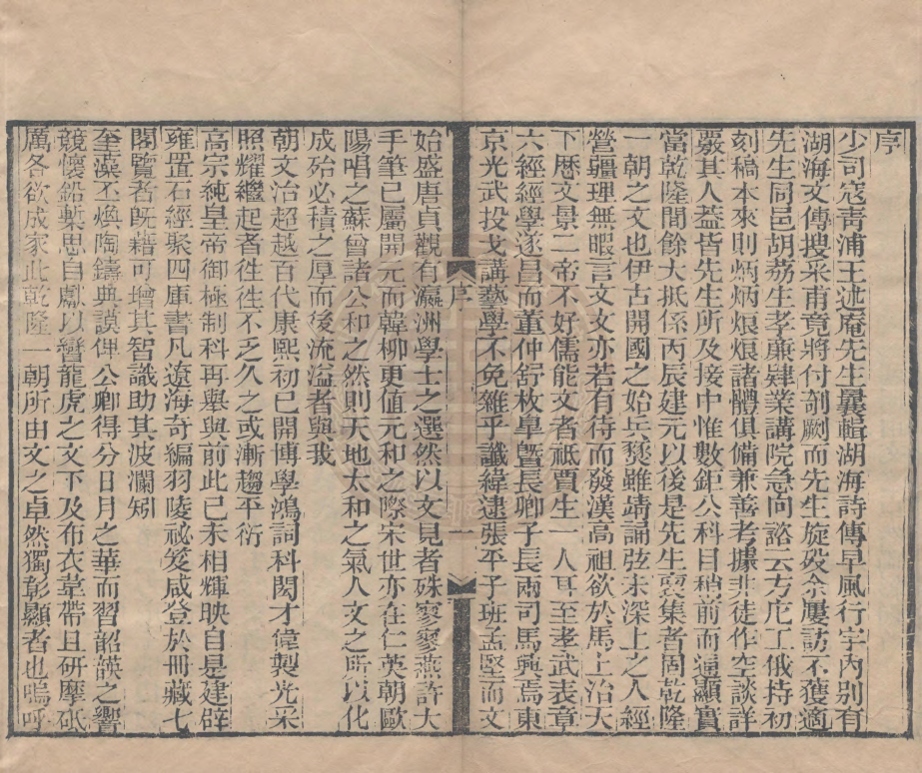 序
少司寇青浦王述庵先生曩輯湖海詩傳早風行宇內別有
湖海文傳搜采甫竟將付剞劂而先生旋歿余屢訪不獲適
先生同邑胡荔生孝廉肄業講院急向諮云方庀工俄持初
刻稿本來則炳炳烺烺諸體俱備兼善考據非徒作空談詳
覈其人蓋皆先生所及接中惟數鉅公科目稍前而通顯實
當乾隆閒餘大抵係丙辰建元以後是先生裒集者固乾隆
一朝之文也伊古開國之始兵燹雖靖誦弦未深上之人經
營疆理無暇言文文亦若有待而發漢高祖欲於馬上治天
下歷文景二帝不好儒能文者祇賈生一人耳至孝武表章
六經經學遂昌而董仲舒枚皐暨長卿子長兩司馬興焉東
京光武投戈講藝學不免雜乎讖緯逮張平子班孟堅而文
序
一
始盛唐貞觀有瀛洲學士之選然以文見者殊寥寥燕許大
手筆已屬開元而韓柳更値元和之際宋世亦在仁英朝歐
陽唱之蘇曾諸公和之然則天地太和之氣人文之所以化
成殆必積之厚而後流溢者與我
朝文治超越百代康熙初已開博學鴻詞科閎才偉製光采
照耀繼起者往往不乏久之或漸趨平衍
高宗純皇帝御極制科再舉與前此己未相輝映自是建辟
雍置石經聚四庫書凡遼海奇編羽陵祕笈咸登於冊藏七
閣覽者旣藉可增其智識助其波瀾矧
奎藻丕煥陶鑄典謨俾公卿得分日月之華而習韶頀之響
競懷鉛槧思自獻以鸞龍虎之文下及布衣韋帶且研摩砥
厲各欲成家此乾隆一朝所由文之卓然獨彰顯者也嗚呼